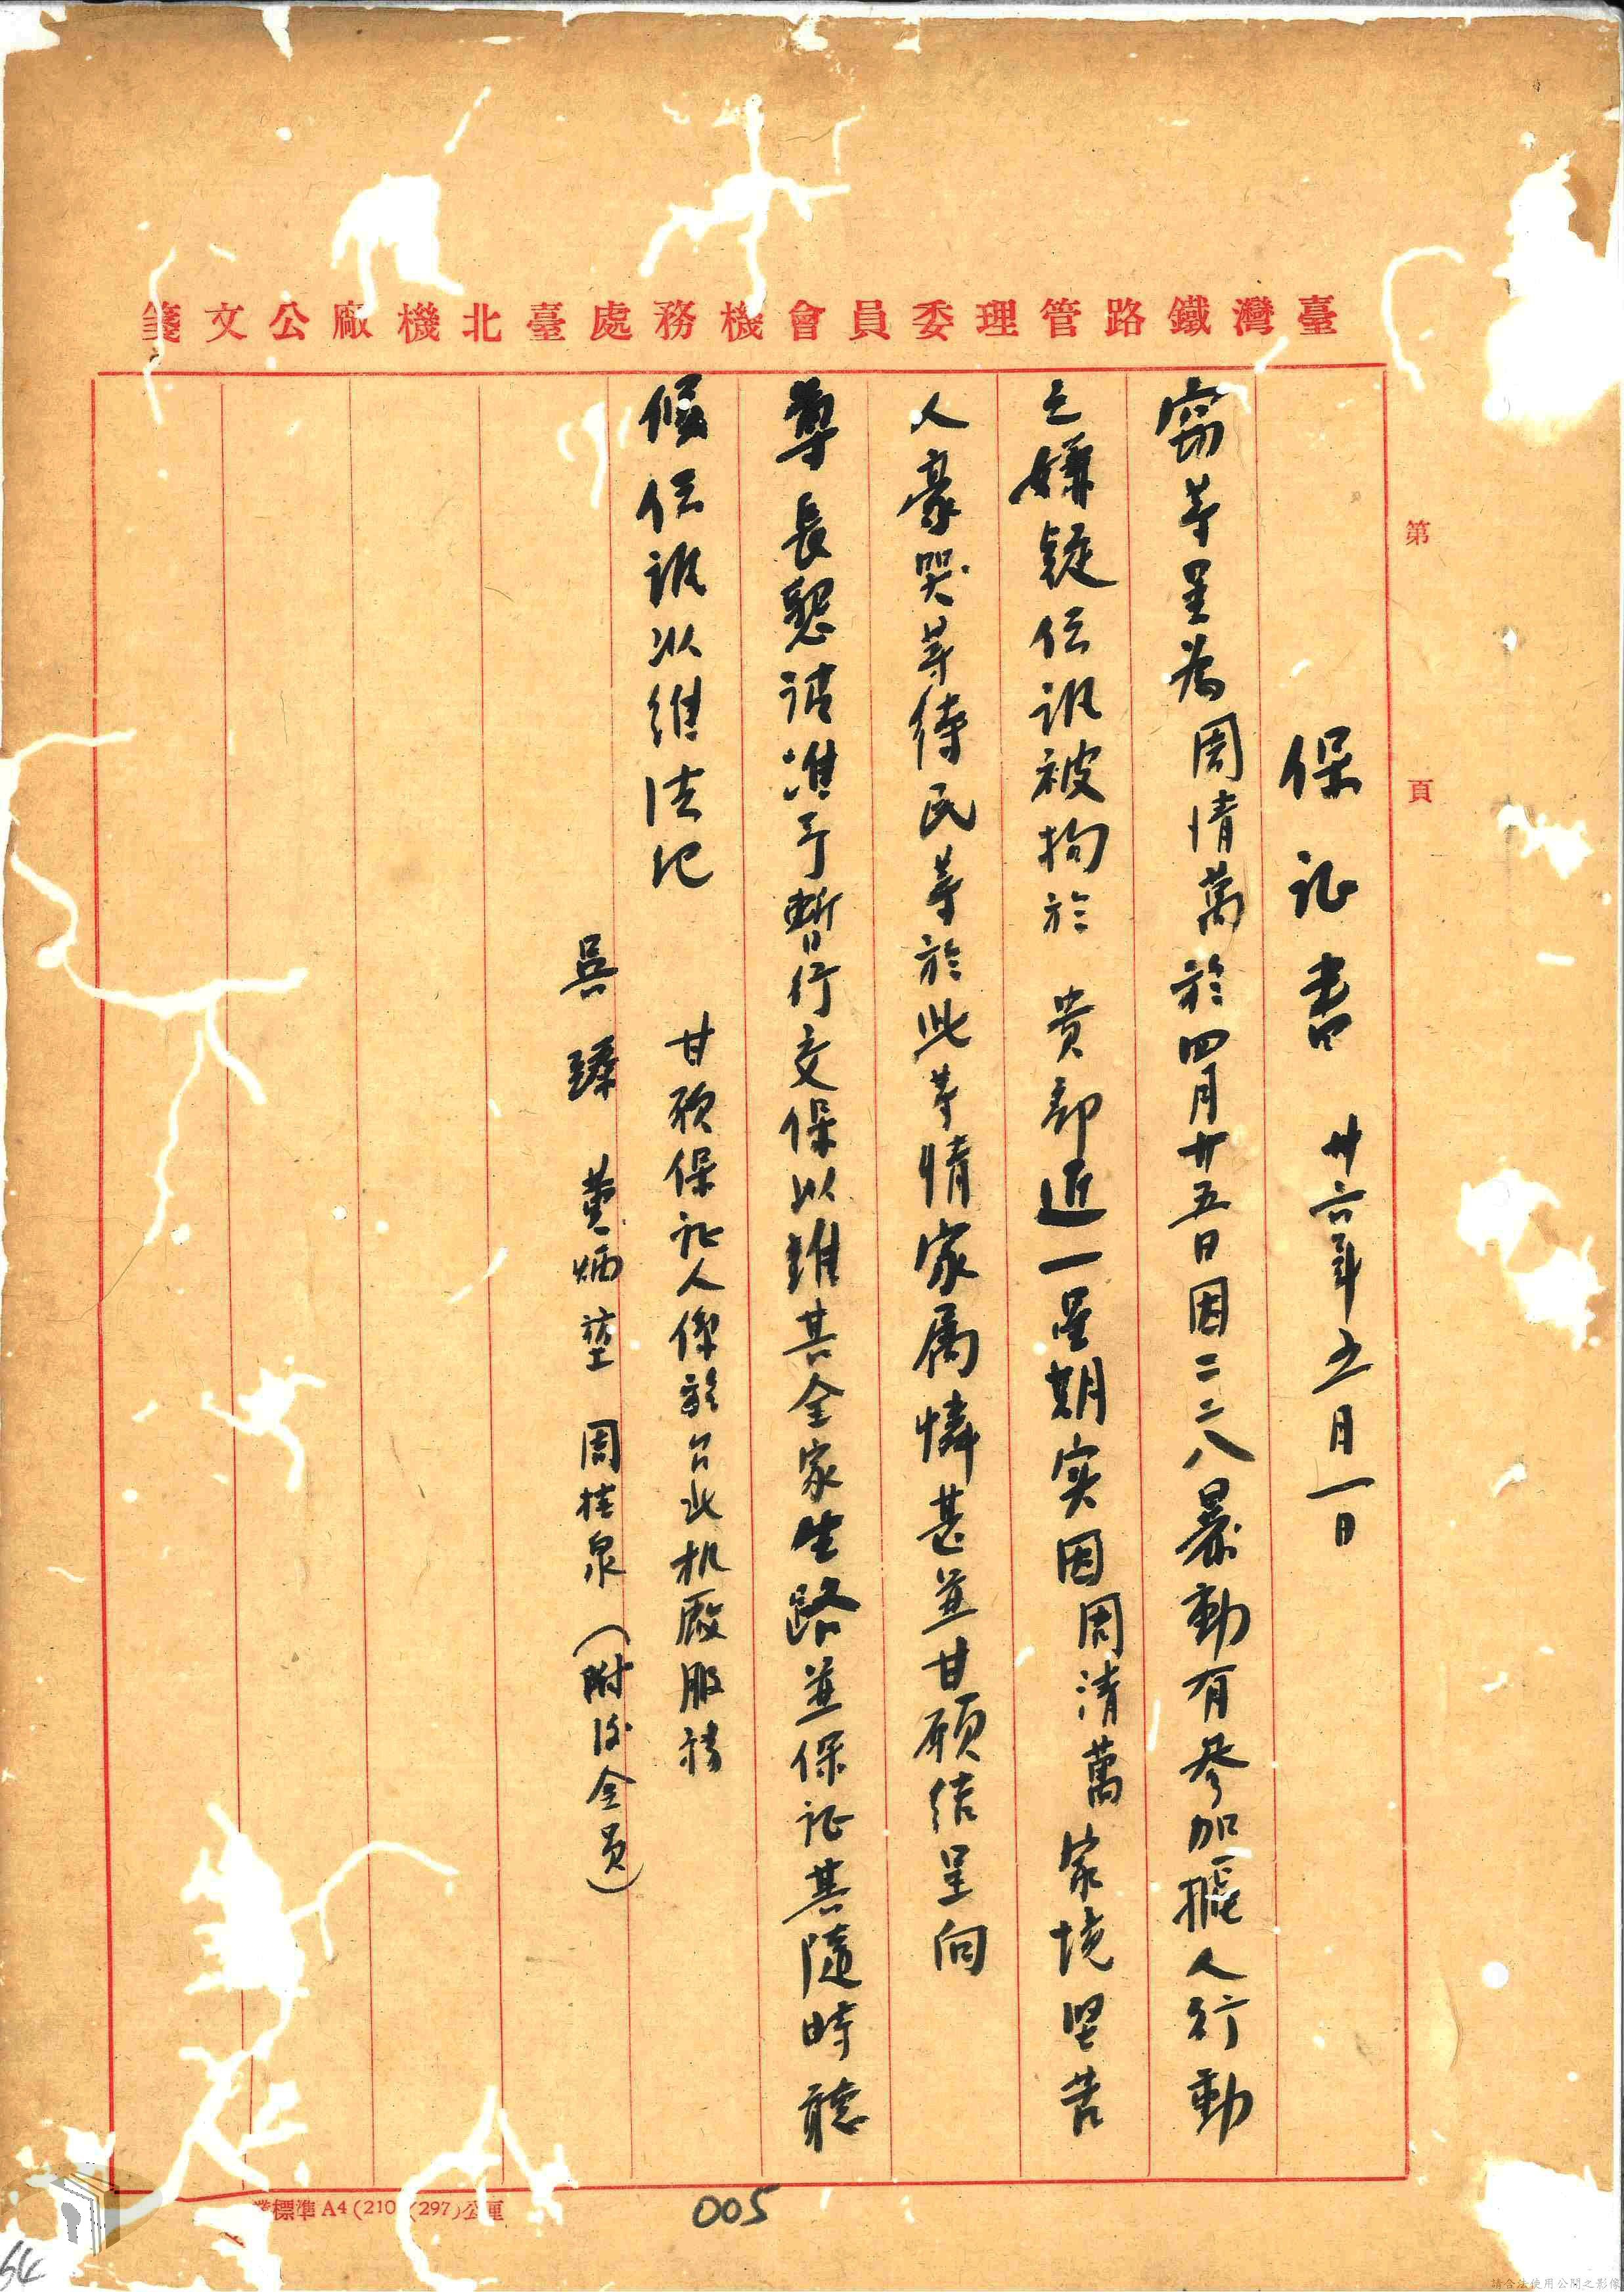 臺灣鐵路管理委員會機務處臺北機廠公文箋
第 頁
保証書 卅六年五月一日
竊等呈為周清萬於四月廿五日因二二八暴動有參加擺人行動
之嫌疑伝訊被拘於 貴部近一星期实因周清萬家境堅苦
人豪哭等待民等於此等情家属憐甚並甘願结呈向
尊長懇请准予暫行交保以維其全家生路並保证其隨時聽
候伝訊以維法纪
甘願保证人係於台北机厰服務
吳 黄炳 周桂泉（附後全員）
標準A4(210 (297)公厘
005
64
請合法使用公開之影像